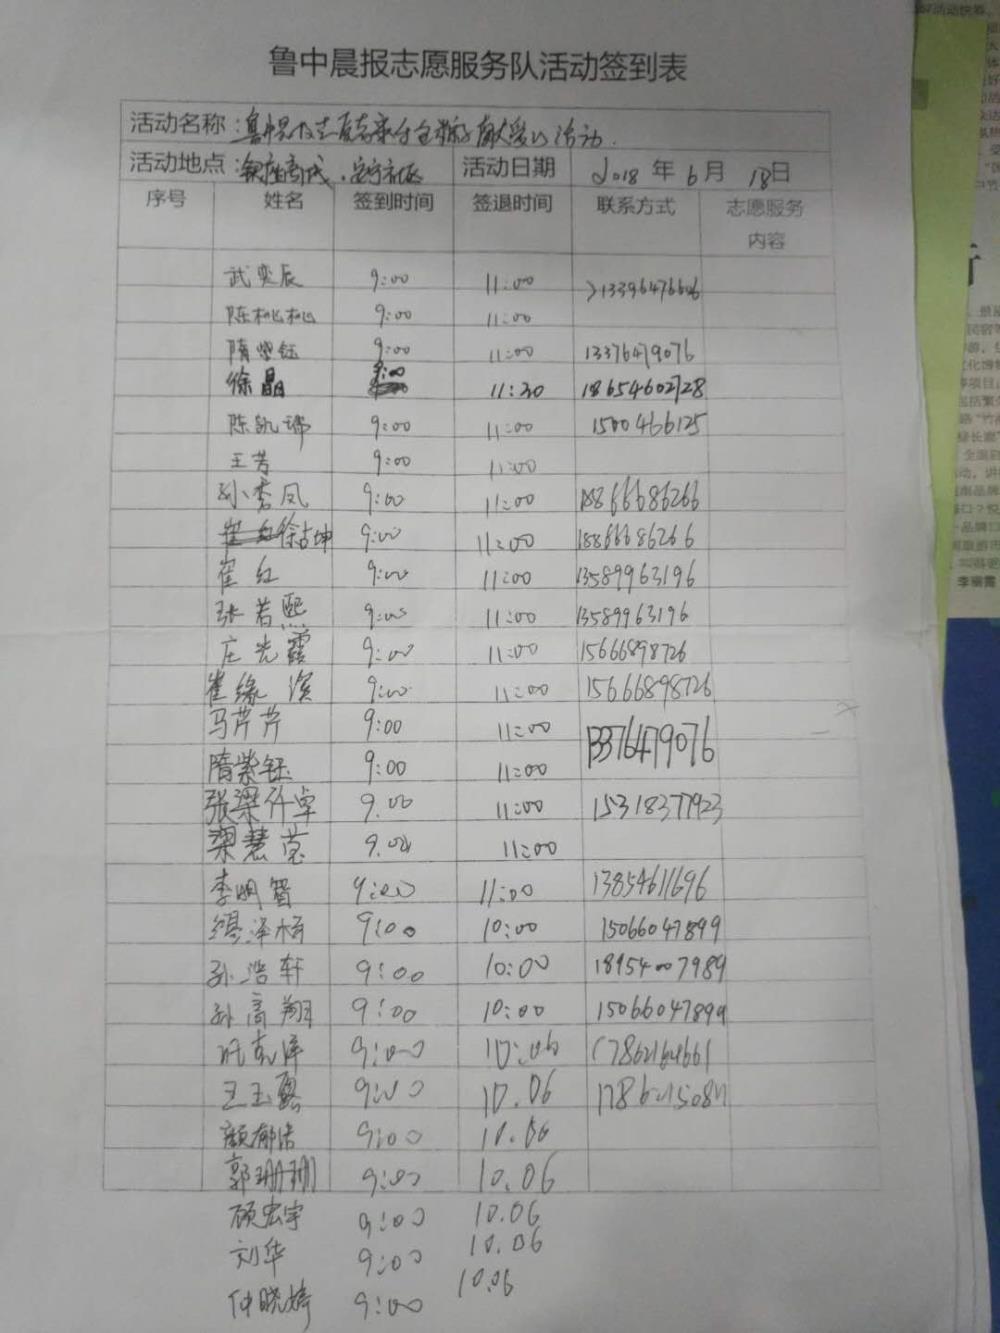 鲁中晨报志愿服务队活动签到表
活动名称：
活动地点： 活动日期 2018 年 6 月 18日
序号 姓名 签到时间 签退时间 联系方式 志愿服务
内容
武奕辰 9:00 11:00 13396476606
陈桃桃 9:00 11:00
隋紫钰 9:00 11:00 13376479076
徐晶 9:00 11:30 18654602728
陈凯瑞 9:00 11:00 1500466125
王芳 9:00 11:00
孙秀凤 9:00 11:00 18866686266
徐吉坤 9:00 11:00 18866686266
崔红 9:00 11:00 13589963196
张若熙 9:00 11:00 13589963196
庄光霞 9:00 11:00 15666898726
崔缘滨 9:00 11:00 15666898726
马芹芹 9:00 11:00 13376479076
隋紫钰 9:00 11:00
张梁仟卓 9.00 11:00 15318377923
梁慧莹 9.00 11:00
李明智 9:00 11:00 13854611696
泽梧 9:00 10:00 15066047899
孙浩轩 9:00 10:00 18954007989
孙高翔 9:00 10:00 15066047899
9:00 10:06 17862164661
王玉磊 9:00 10.06
颜郁浩 9:00 10.06
郭珊珊 9:00 10.06
顾宏宇 9:00 10.06
刘华 9:00 10.06
仲晓婷 9:00 10.06
李丽霞